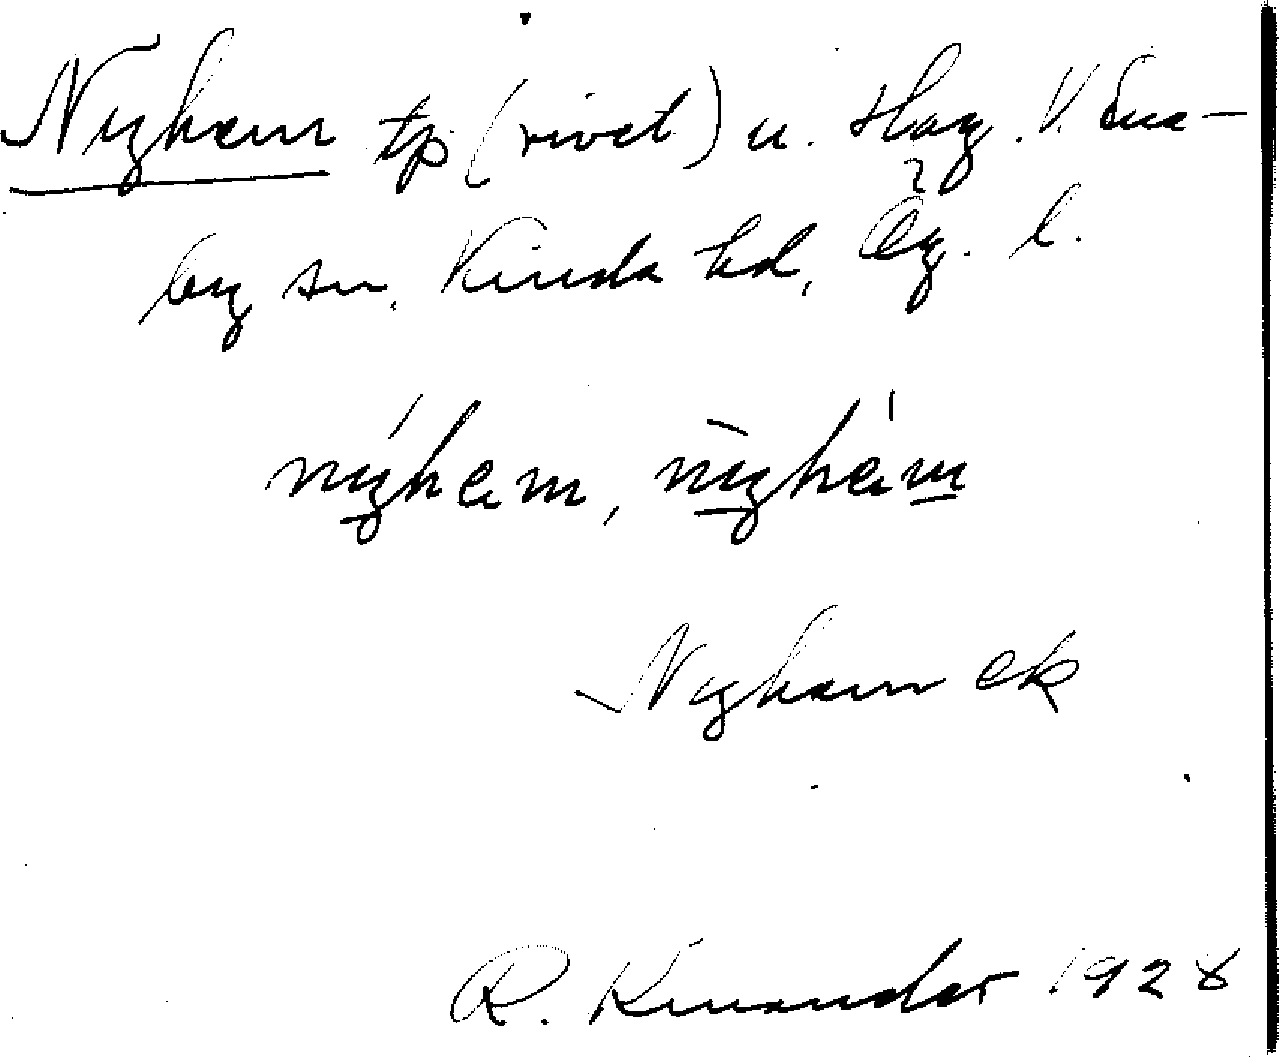 Nyhem tp (rivet) u. Hag. V. Ene-
by sn, Kinda hd, Ög. l.
nýhem, nỳhèm
Nyhem ek
R. Kinander 1928